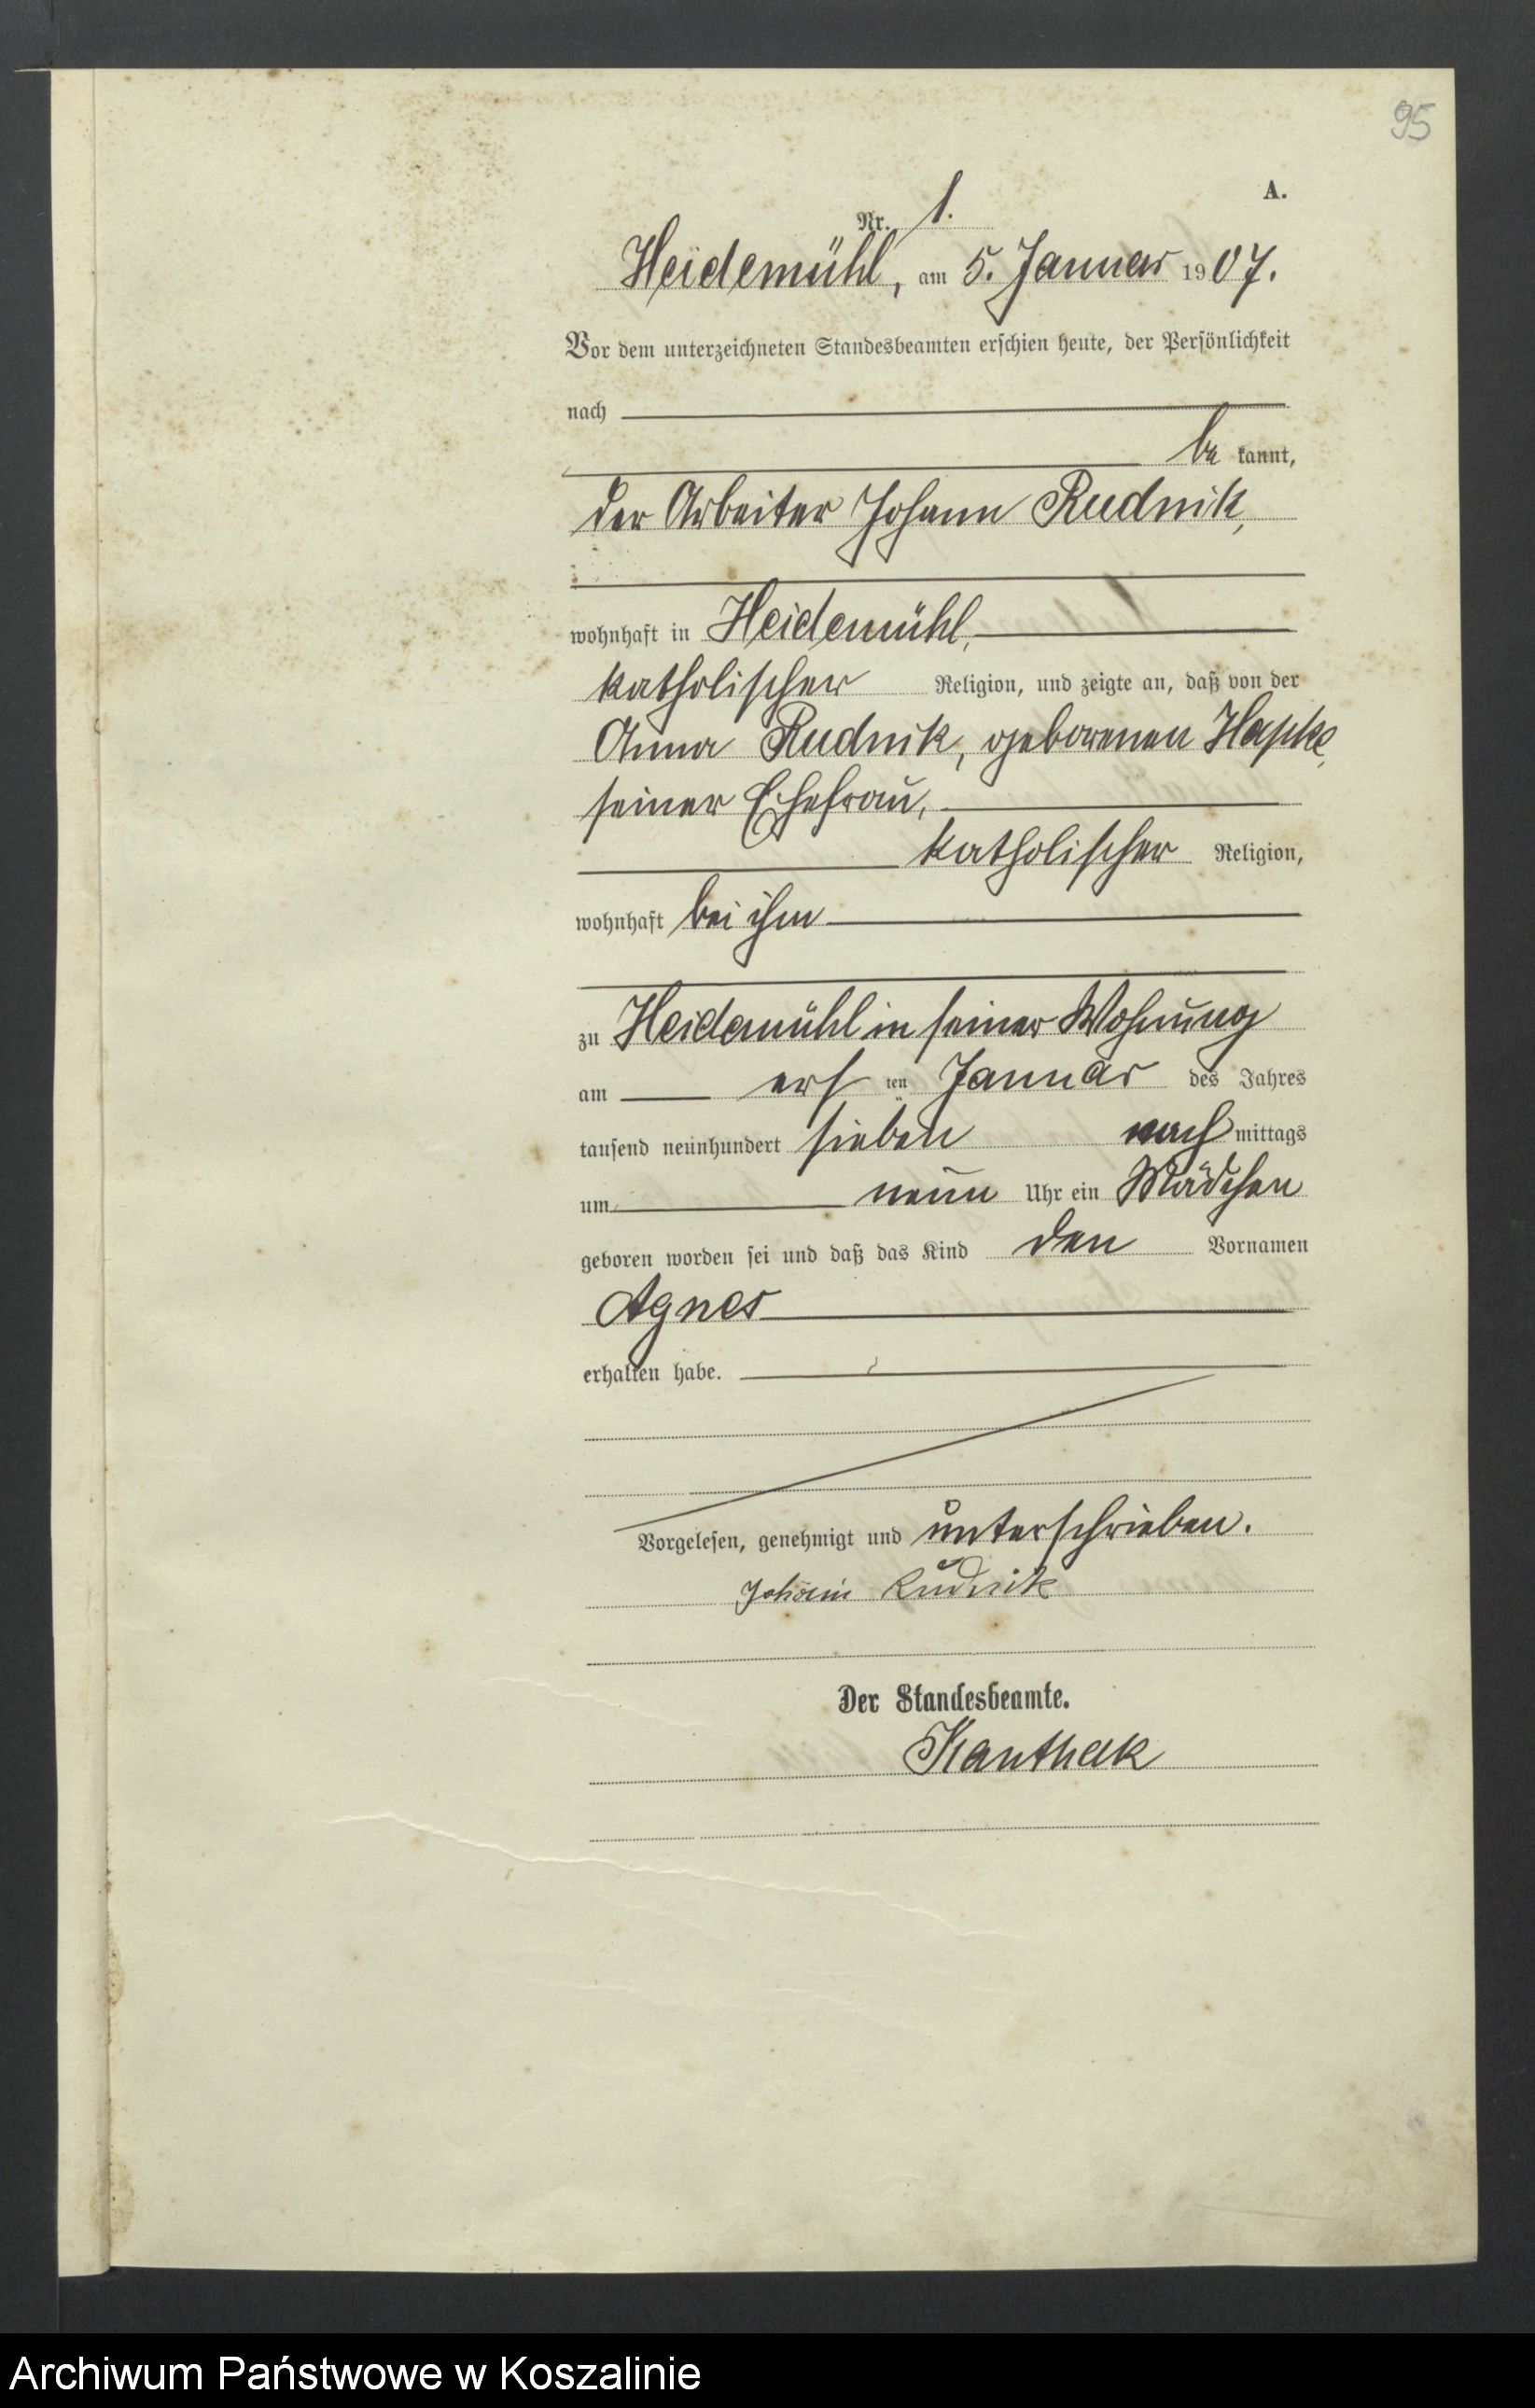 95
A.
Nr. 1.
Heidemühl, am 5. Januar 1907.
Vor dem unterzeichneten Standesbeamten erschien heute, der Persönlichkeit
nach
be kannt,
der Arbeiter Johann Rudnik,
wohnhaft in Heidemühl,
katholischer Religion, und zeigte an, daß von der
Anna Rudnik, geborenen Hapke,
seiner Ehefrau,
katholischer Religion,
wohnhaft bei ihm
zu Heidemühl in seiner Wohnung
am ersten Januar des Jahres
tausend neunhundert sieben nach mittags
um neun Uhr ein Mädchen
geboren worden sei und daß das Kind den Vornamen
Agnes
erhalten habe.
Vorgelesen, genehmigt und unterschrieben.
Johann Rudnik
Der Standesbeamte.
Kanthak
Archiwum Państwowe w Koszalinie